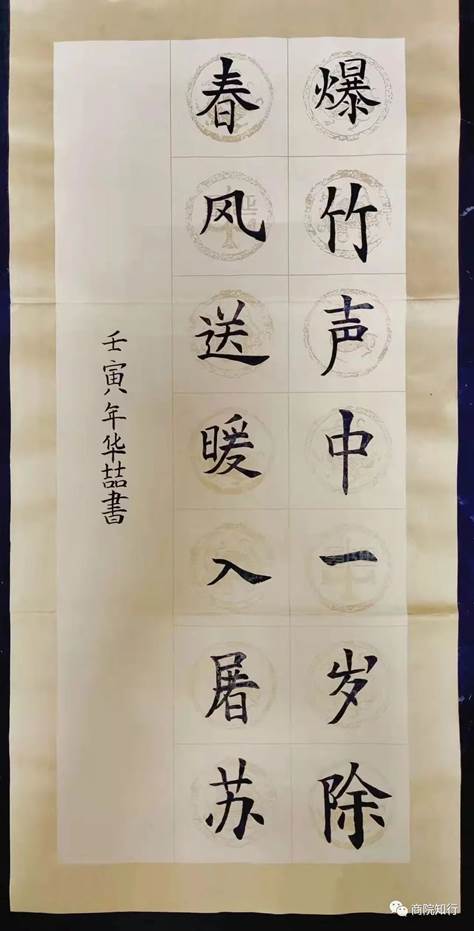 爆竹声中一岁除
春风送暖入屠苏
壬寅年华喆書
商院知行